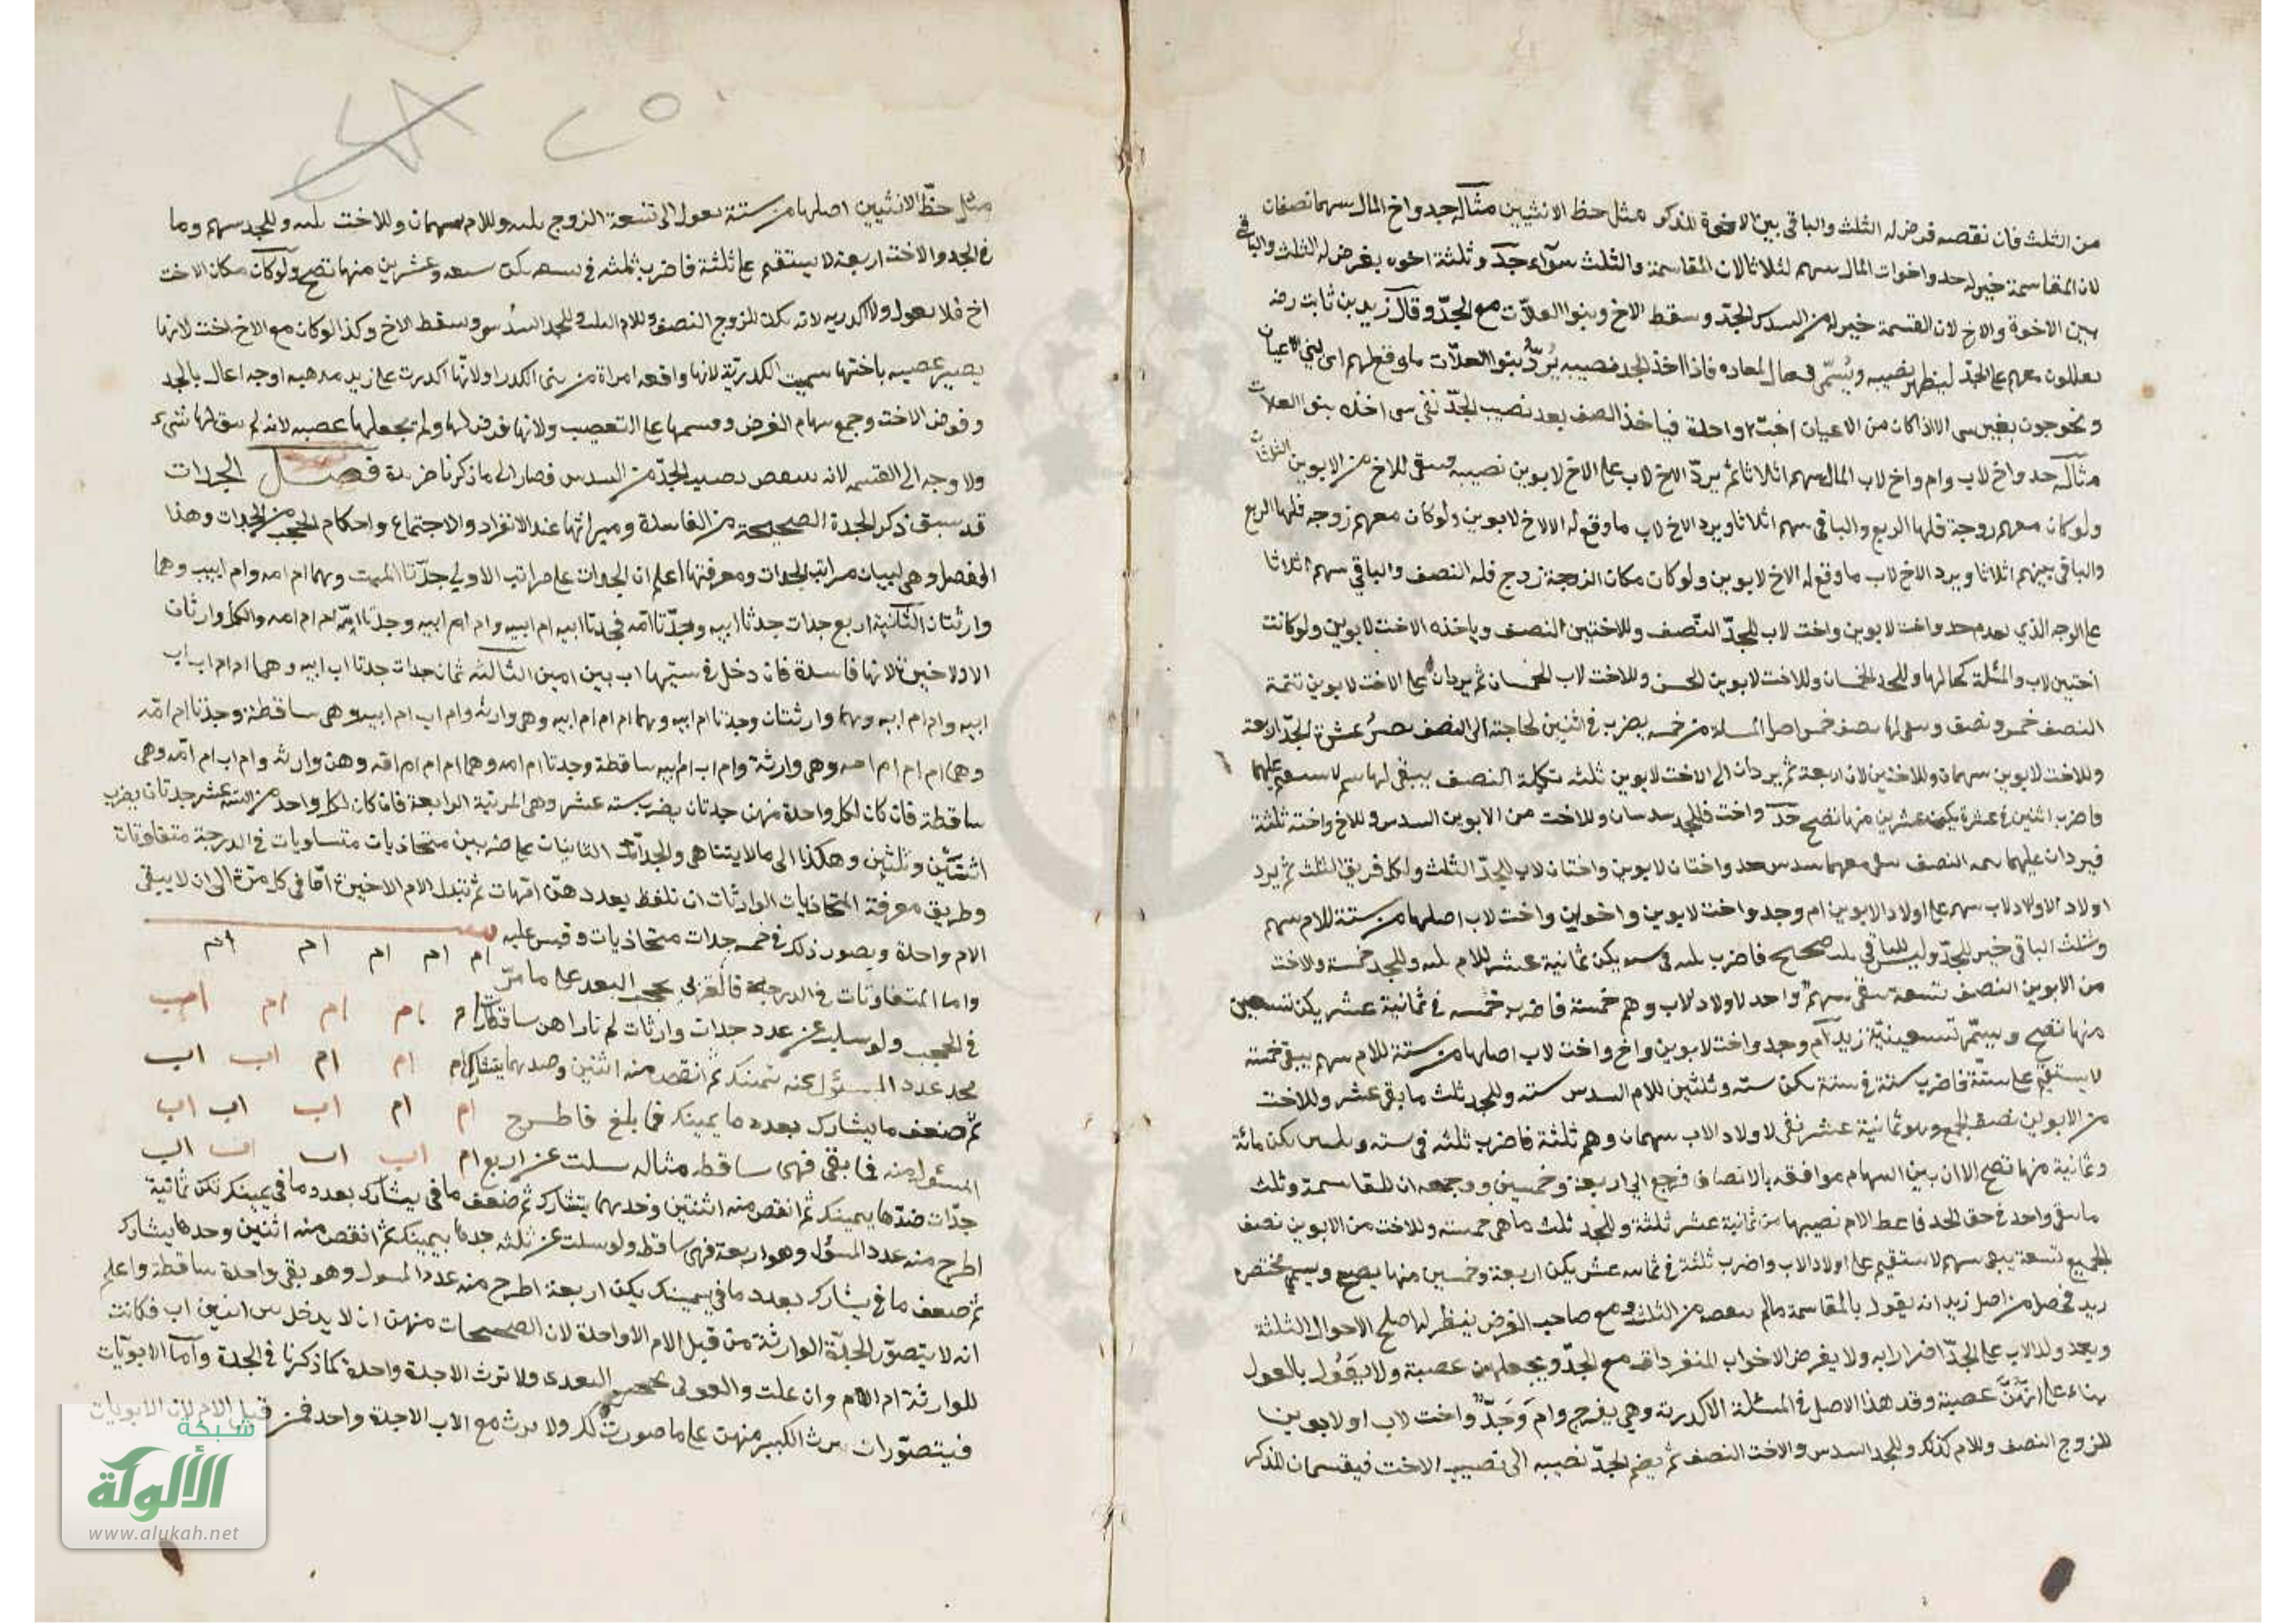 من الثلث فان نقصه فرض له الثلث والباقى بين الاخوة للذكر مثل حظ الانثيين مثاله جد واخ المال بينهما نصفان
لان المقاسمة خير له جد واخوات المال بينهم اثلاثا لان المقاسمة والثلث سوآء جد وثلثة اخوه يفرض له الثلث والباقى
بين الاخوة والاخ لان القسمة خير له من السدس للجد وسقط الاخ وبنوا العلات مع الجد وقال زيد بن ثابت رضه
معهم على الجد ليظهر نصيبه ويسمى المعاده فاذا اخذ الجد نصيبه يرد بنوا العلات ما وقع لهم الى بنى الاعيان
ويخرجون بغير شى الا اذا كان من الاعيان اخت واحدة فياخذ النصف بعد نصيب الجد بقى شى اخذه بنوا العلات
مثاله جد واخ لاب وام واخ لاب المال بينهم اثلاثا ثم يرد الاخ لاب على الاخ لابوين نصيبه فيبقى للاخ من الابوين الثلثان
ولو كان معهم زوجة فلها الربع والباقى بينهم اثلاثا ويرد الاخ لاب ما وقع له الى الاخ لابوين ولو كان معهم زوجه فلها الربع
والباقى بينهم اثلاثا ويرد الاخ لاب ما وقع له الاخ لابوين ولو كان مكان الزوجة زوج فله النصف والباقى بينهم اثلاثا
على الوجه الذي جد واخت لابوين واخت لاب للجد النصف وللاختين النصف وياخذه الاخت لابوين ولو كانت
اختين لاب والمسئلة بحالها وللجد الخمسان وللاخت لابوين الخمس وللاخت لاب الخمسان ثم يردان على الاخت لابوين تتمة
النصف خمس ونصف ويبقى لهما نصف خمس اصل المسئلة من خمسه يضرب فى اثنين لحاجته الى النصف عشرة للجد اربعة
وللاخت لابوين سهمان وللاختين لاب اربعة ثم يردان الى الاخت لابوين ثلثه تكملة النصف يبقى لهما سهم لا يستقيم عليهما
فاضرب اثنين فى عشرة يكن عشرين منها تصح جد واخت فللجد سدسان وللاخت من الابوين السدس وللاخ واخته ثلثة
فيردان عليهما النصف معهما سدس جد واختان لابوين واختان لاب للجد الثلث ولكل فريق الثلث ثم يرد
اولاد لاب سهمهم على اولاد الابوين ام وجد واخت لابوين واخوان واخت لاب اصلها من ستة للام سهم
وثلث الباقى خير للجد وليس للباقى ثلث صحيح فاضرب ثلثه فى سته يكن ثمانية عشر للام ثلثه وللجد خمسة والاخت
من الابوين النصف تسعة بقى سهم واحد لاولاد لاب وهم خمسة فاضرب خمسه فى ثمانية عشر يكن تسعين
منها تصح ويسمى تسعينية زيد ام وجد واخت لابوين واخ واخت لاب اصلها من ستة للام سهم يبقى خمسة
لا يستقيم على ستة فاضرب ستة فى ستة يكن ستة وثلثين للام السدس سته وللجد ثلث ما بقى عشر وللاخت
من الابوين نصف الجميع وهو ثمانية عشر بقى لاولاد الاب سهمان وهم ثلثة فاضرب ثلثه فى سته وثلثين يكن مائة
وثمانية منها تصح الا ان بين السهام موافقه بالانصاف فرجع الى اربعة وخمسين ووجهه ان المقاسمة وثلث
ما بقى واحد فى حق الجد فاعط الام نصيبها من ثمانية عشر ثلثة وللجد ثلث ما بقى خمسه وللاخت من الابوين نصف
الجميع تسعة يبقى سهم لا يستقيم على اولاد الاب واضرب ثلثة فى ثمانية عشر يكن اربعة وخمسين منها يصح ويسمى مختصره
زيد فحصل من اصل زيد انه يقول بالمقاسمة مالم ينقصه من الثلث ومع صاحب الفرض ينظر له اصلح الاحوال الثلثة
ويعد ولد الاب على الجد اضرارا به ولا يفرض الاخوات المنفردات مع الجد ويجعلهن عصبة ولا يقول بالعول
بناء على انهن عصبة وقد هذا الاصل فى المسئلة الاكدرية وهى زوج وام وجد واخت لاب او لابوين
للزوج النصف وللام كذلك وللجد السدس والاخت النصف ثم يضم الجد نصيبه الى نصيب الاخت فيقسمان للذكر
٢٥
مثل حظ الانثيين اصلها من ستة تعول الى تسعة الزوج ثلثه وللام سهمان وللاخت ثلثه وللجد سهم وما
فى الجد والاخت اربعة لا يستقيم على ثلثة فاضرب ثلثه فى تسعه يكن سبعه وعشرين منها تصح ولو كان مكان الاخت
اخ فلا يعول ولا اكدريه لانه يكن للزوج النصف وللام الثلث وللجد السدس وسقط الاخ وكذا لو كان مع الاخ اخت لانها
يصير عصبه باختها سميت الكدرية لانها واقعه امراة من بنى الكدر او لانها اكدرت على زيد مذهبه اوجه اعال بالجد
وفرض الاخت وجمع سهام الفرض وقسمها على التعصيب ولانها فرض لها ولم يجعلها عصبه لانه لم يبق لها شىء
ولا وجه الى القسمه لانه ينقص نصيب الجد من السدس فصار الى ما ذكرنا ضرورة فصل الجدات
قد سبق ذكر الجدة الصحيحة من الفاسدة وميراثها عند الانفراد والاجتماع واحكام الحجب من الجدات وهذا
الفصل وهى لبيان مراتب الجدات ومعرفتها اعلم ان الجدات على مراتب الاولى جدتا الميت وهما ام امه وام ابيه وهما
وارثتان الثانية اربع جدات جدتا ابيه وجدتا امه فجدتا ابيه ام ابيه وام ام ابيه وجدتا امه ام ام امه والكل وارثات
الا الاخيرة لانها فاسدة فان دخل فى نسبتها اب بين امين الثالثه ثمان جدات جدتا اب ابيه وهما ام ام اب اب
ابيه وام ام ابيه وهما وارثتان وجدتا ام ابيه وهما ام ام ام ابيه وهى وارثه وام اب ام ابيه وهى ساقطة وجدتا ام امه
وهما ام ام ام امه وهى وارثة وام اب ام ابيه ساقطة وجدتا ام امه وهما ام ام ام امه وهن وارثه وام اب ام امه وهى
ساقطة فان كان لكل واحدة منهن جدتان يضرب سته عشر وهى المرتبة الرابعة فان كان لكل واحد من الستة عشر جدتان يضرب
اثنتين وثلثين وهكذا الى مالا يتناهى والجدات الثابتات على ضربين متحاذيات متساويات فى الدرجة متفاوتات
وطريق معرفة المتحاذيات الوارثات ان تلفظ بعددهن امهات ثم تبدل الام الاخيرة ابا فى كل مرة الى ان لا يبقى
الام واحدة ويصور ذلك فى خمسه جدات متحاذيات وقس عليه ام ام ام ام ام
واما المتفاوتات فى الدرجة فالقربى تحجب البعدى على ما مر
ام ام ام ام اب
فى الحجب ولو سئلت عن عدد جدات وارثات
ام ام ام اب اب
عدد المسؤل عنه بيمينك ثم انقص منه اثنين
ام ام اب اب اب
ثم ضعف ما بيسارك بعدد ما بيمينك فما بلغ فاطرح
ام اب اب اب اب
المسئول منه فما بقى فهى ساقطه مثاله سئلت عن اربع
جدات بيمينك ثم انقص منه اثنتين بيسارك ثم ضعف ما فى يسارك بعدد ما فى يمينك تكن ثمانية
اطرح منه عدد المسؤل وهو اربعة فهى ساقط ولو سئلت عن ثلثه بيمينك ثم انقص منه اثنين بيسارك
ثم ضعف ما فى يسارك بعدد ما فى يمينك يكن اربعة اطرح منه عدد المسول وهو بقى واحدة ساقطة واعلم
انه لا يتصور الجدة الوارثة من قبل الام الا واحدة لان الصحيحات منهن ان لا يدخل بين اب فكانت
للوارثة ام الام وان علت والقربى تحجب البعدى ولا ترث الا جدة واحدة كما ذكرنا فى الجدة واما الابويات
فيتصور ان يرث الكثير منهن على ما صورت لك ولا يرث مع الاب الا جدة واحدة من قبل الام لان الابويات
شبكة
الألوكة
www.alukah.net